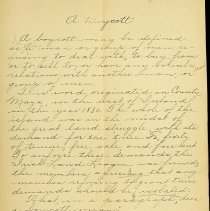 A Boycott
A boycott may be defined
as a man or group of men re-
fusing to deal with, to buy from
or sell to, or have any social
relations with another man or
group of men.
This word originated in County
Mayo, in the west of Ireland
in the year 1880. The
island was in the midst of
the great land struggle, with the
demand for the three F's, fixity
of tenure, free sale, and fair rent.
To enforce these demands the
Irish Land League was formed
the members agreeing that any
member refusing to
demands should be isolated.
That, in a paragraph, does